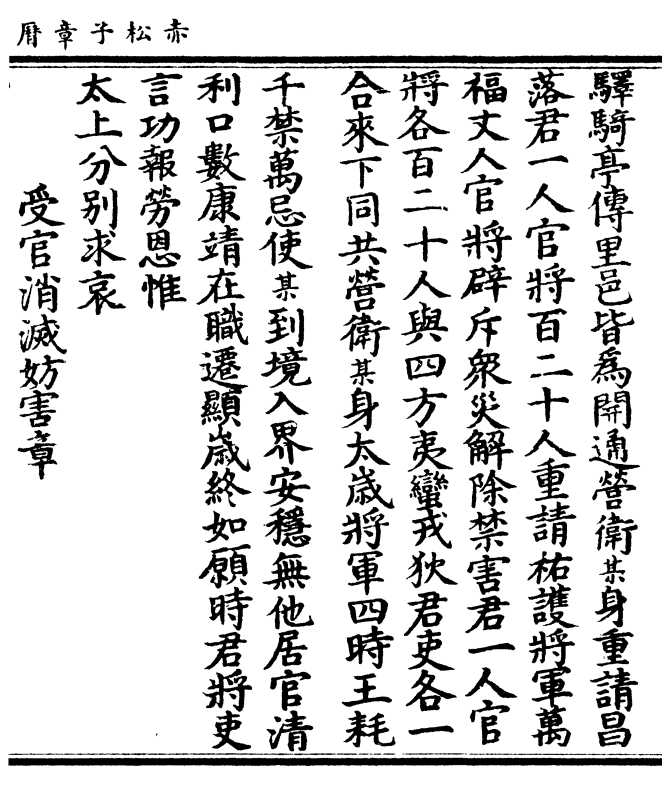 赤松子章曆
驛騎亭傳里邑皆爲開通營衛某身重請昌
落君一人官將百二十人重請祐護將軍萬
福丈人官將辟斥衆災解除禁害君一人官
將各百二十人與四方夷蠻戎狄君吏各一
合來下同共營衛某身太歲將軍四時王耗
千禁萬忌使某到境入界安穩無他居官清
利口數康靖在職遷顯歲終如願時君將吏
言功報勞恩惟
太上分別求哀
受官消滅妨害章